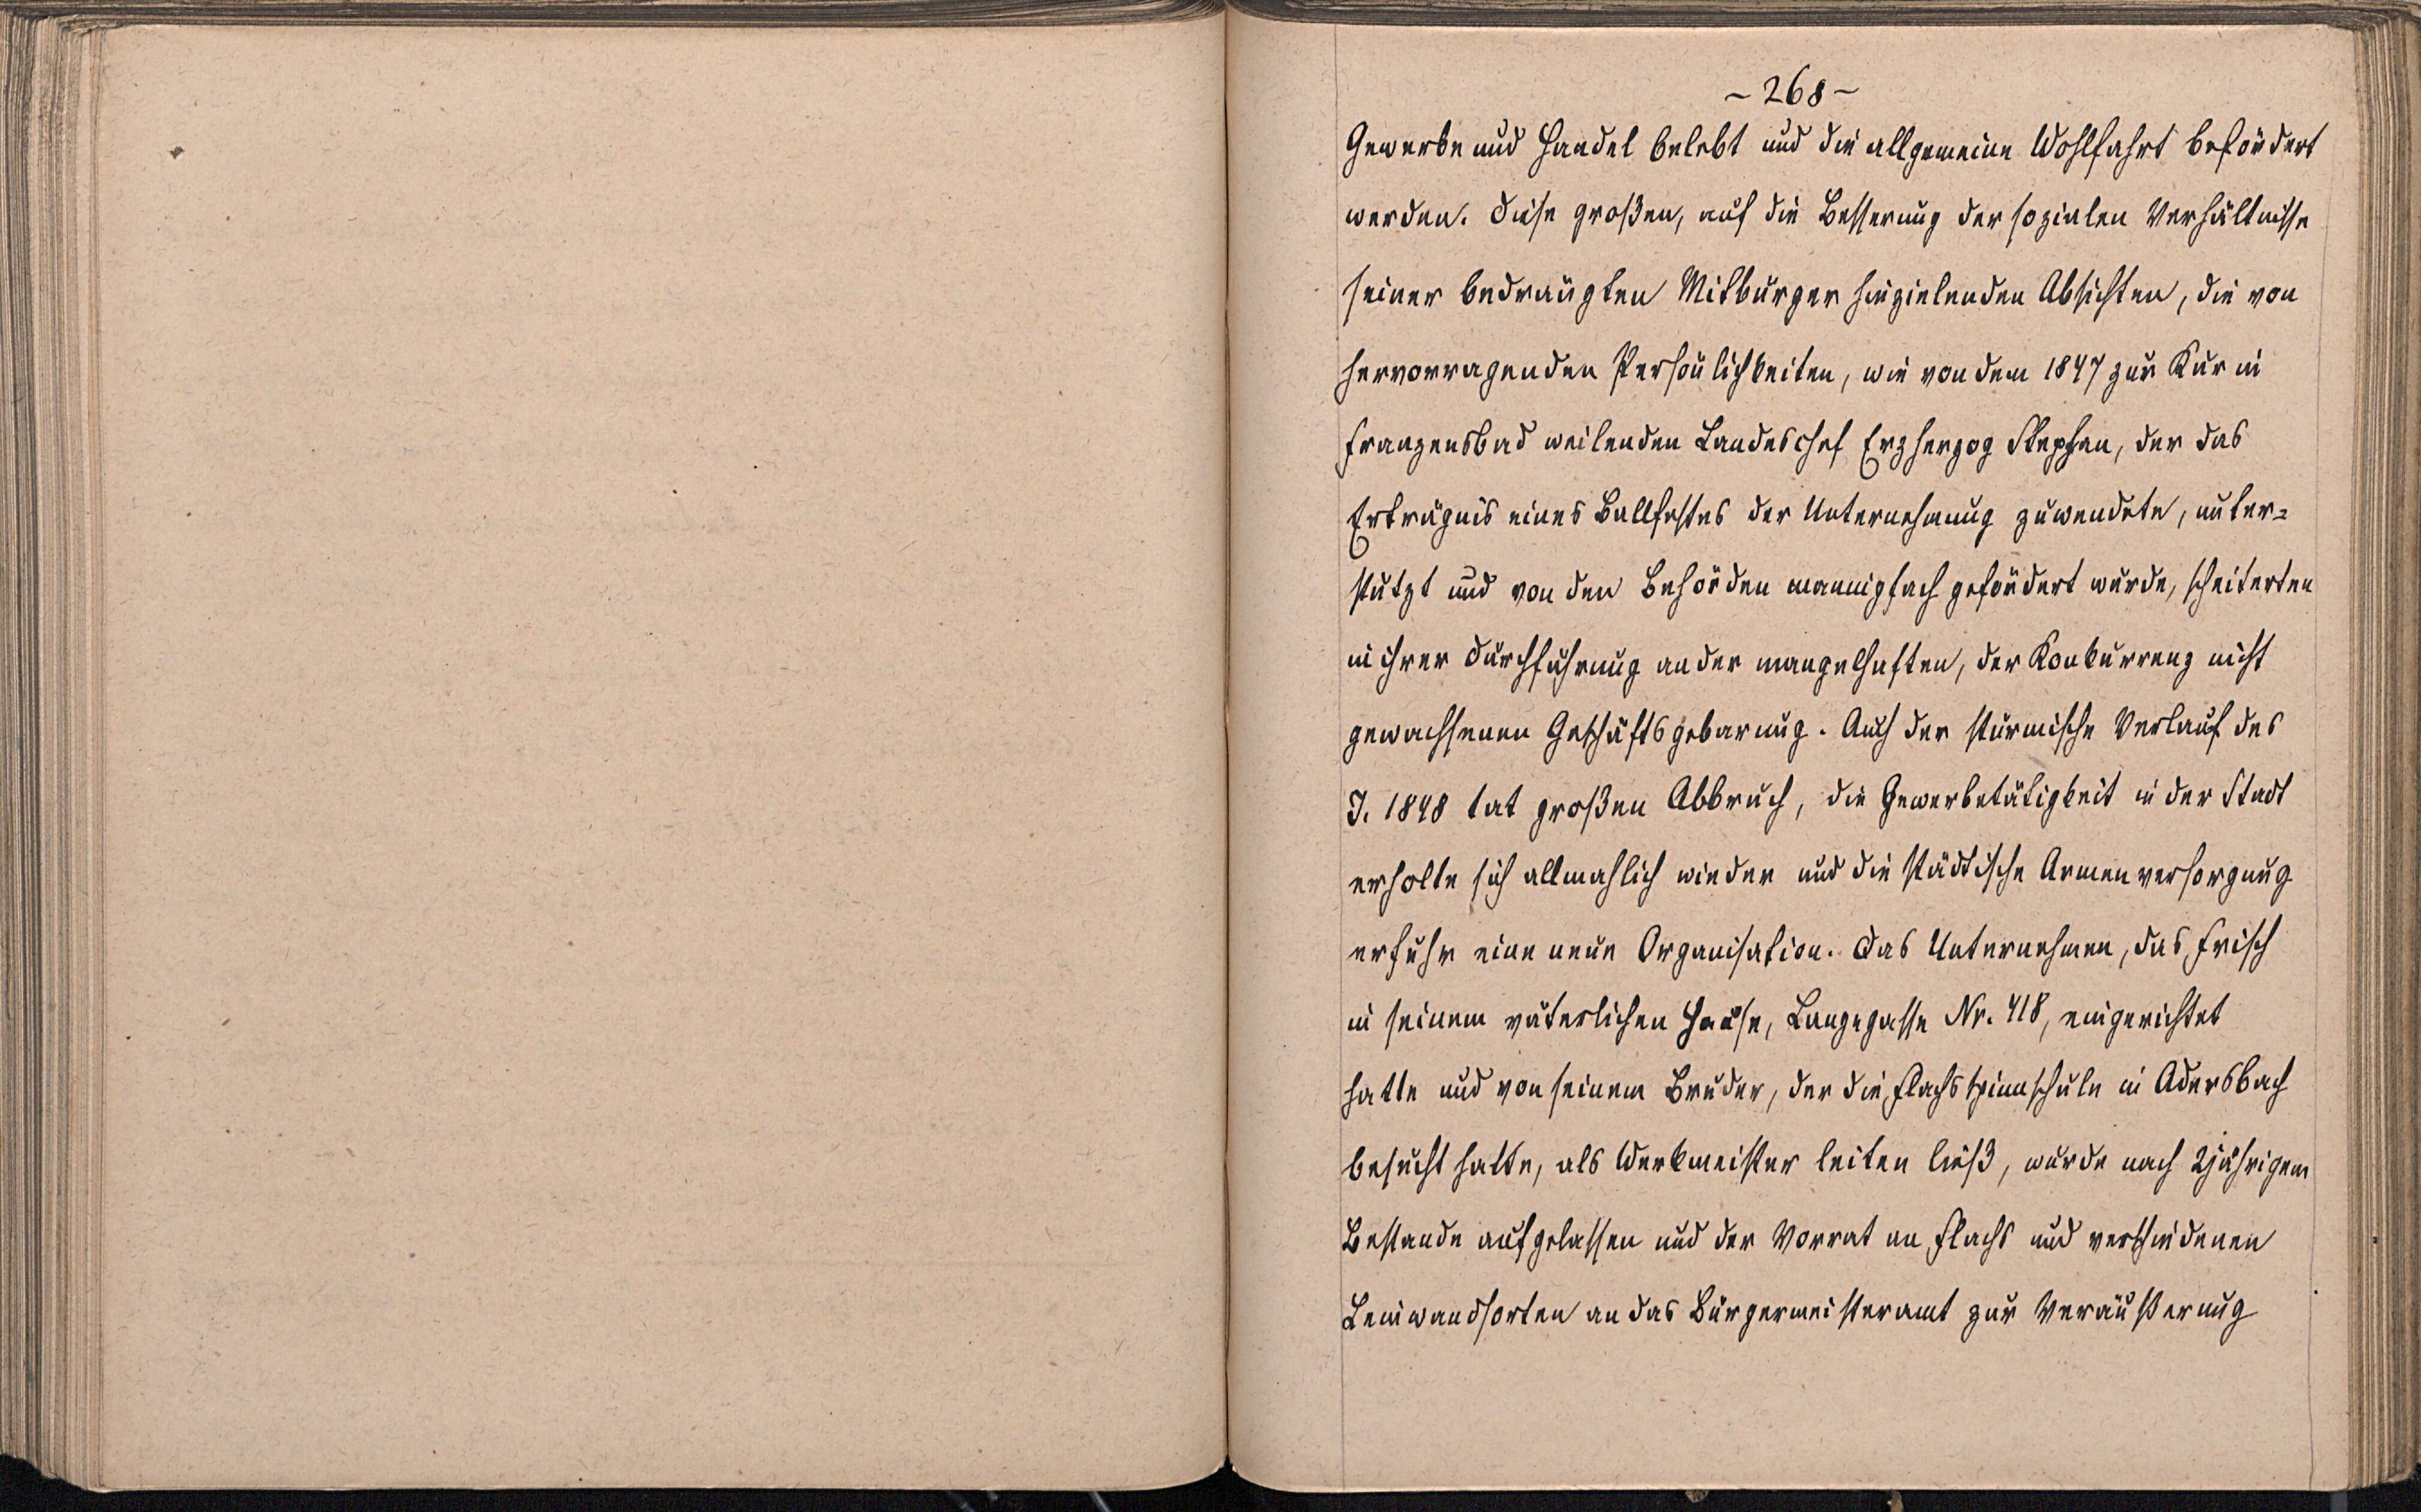 - 268 -
Gewerbe und Handel belebt und die allgemeine Wohlfahrt befördert
werden. Diese großen, auf die Besserung der sozialen Verhältnisse
seiner bedrängten Mitbürger hinzielenden Absichten, die von
hervorragenden Persönlichkeiten, wie von dem 1847 zur Kur in
Franzensbad weilenden Landeschef Erzherzog Stephan, der das
Erträgnis eines Ballfestes der Unternehmung zuwendete, unter=
stützt und von den Behörden mannigfach gefördert wurde, scheiterten
in ihrer Durchführung an der mangelhaften, der Konkurrenz nicht
gewachsenen Geschäftsgebarung. Auch der stürmische Verlauf des
J. 1848 tat großen Abbruch, die Gewerbetätigkeit in der Stadt
erholte sich allmählich wieder und die städtische Armenversorgung
erfuhr eine neue Organisation. Das Unternehmen, das Frisch
in seinem väterlichen Hause, Langegasse Nr. 418, eingerichtet
hatte und von seinem Bruder, der die Flachsspinnschule in Adersbach
besucht hatte, als Werkmeister leiten ließ, wurde nach 2jährigem
Bestande aufgelassen und der Vorrat an Flachs und verschiedenen
Leinwandsorten an das Bürgermeisteramt zur Veräußerung